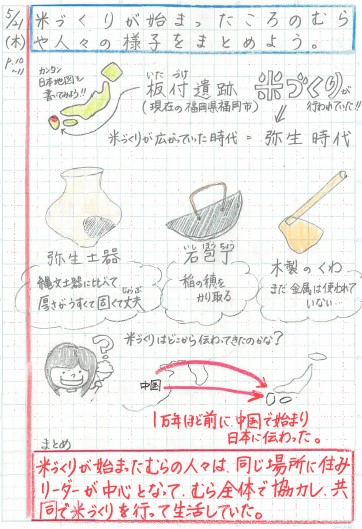 5/21
(木)
P.10
~11
米づくりが始まったころのむら
や人々の様子をまとめよう。
カンタン
日本地図を
書いてみよう!!
いたづけ
板付遺跡
(現在の福岡県福岡市)
米づくりが
行われていた!!
米づくりが広がっていた時代 = 弥生時代
弥生土器
縄文土器に比べて
じょうぶ
厚さがうすくて固くて丈夫
いしぼうちょう
石包丁
稲の穂を
かり取る
木製のくわ
まだ金属は使われて
いない…
米づくりはどこから伝わってきたのかな?
中国
1万年ほど前に、中国で始まり
日本に伝わった。
まとめ
米づくりが始まったむらの人々は、同じ場所に住み
リーダーが中心となって、むら全体で協力し、共
同で米づくりを行って生活していた。